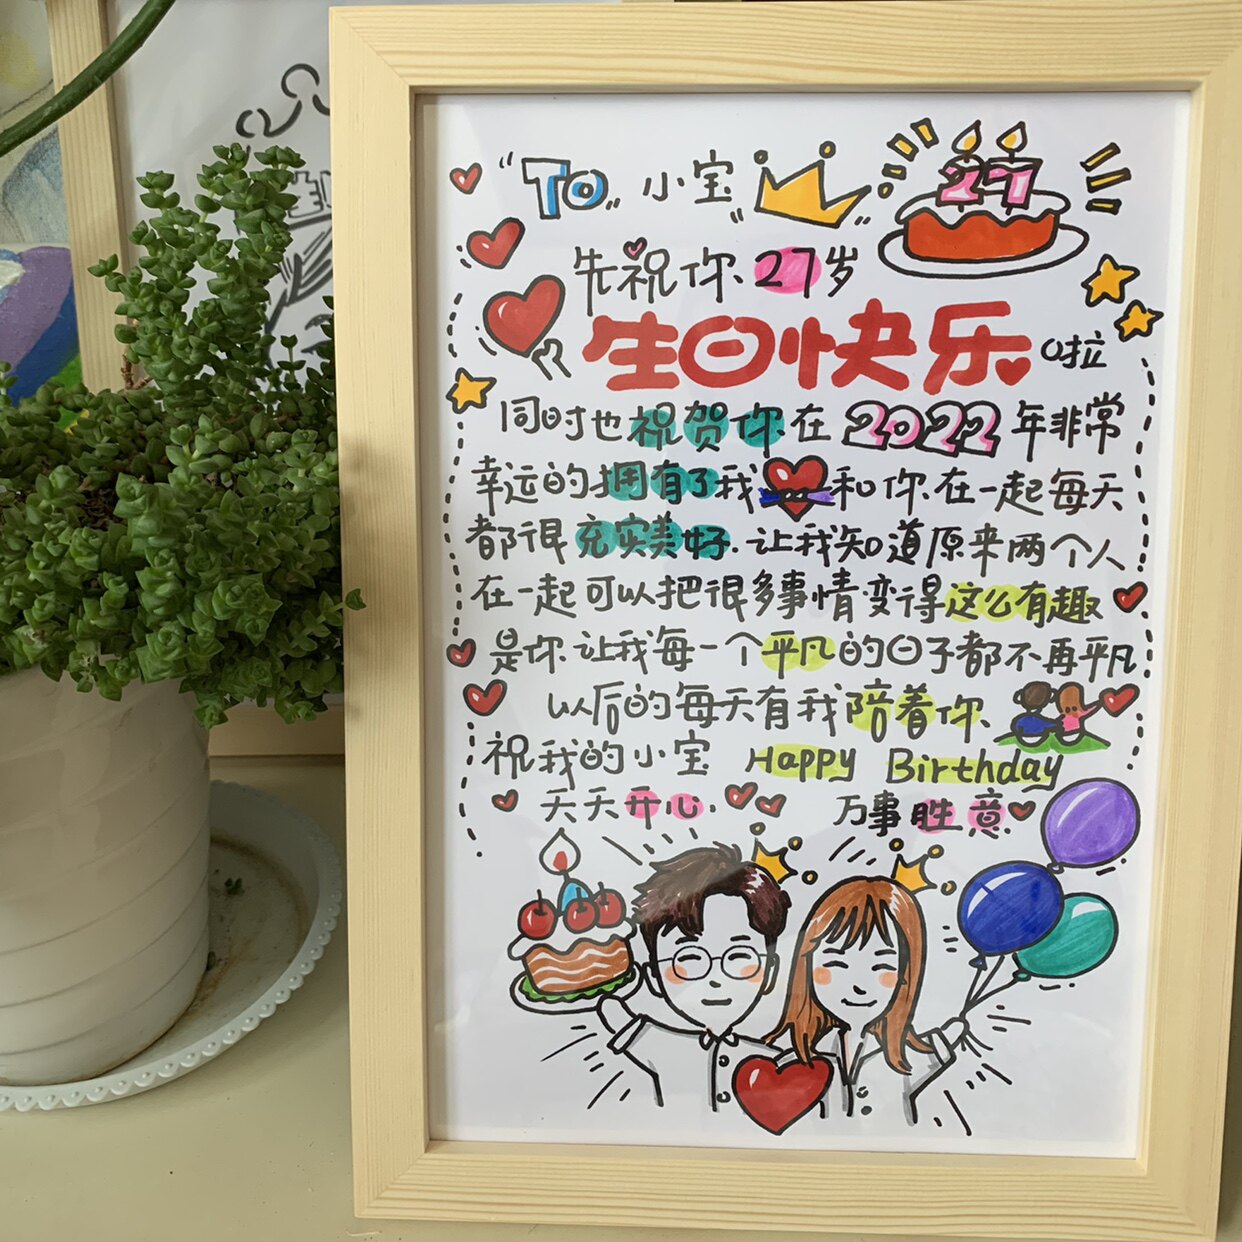 “TO„ 小宝”
27
先祝你27岁
生日快乐啦
同时也祝贺你在2022年非常
幸运的拥有了我 和你在一起每天
都很充实美好.让我知道原来两个人
在一起可以把很多事情变得这么有趣
是你让我每一个平凡的日子都不再平凡
以后的每天有我陪着你、
祝我的小宝 Happy Birthday
天天开心. 万事胜意.